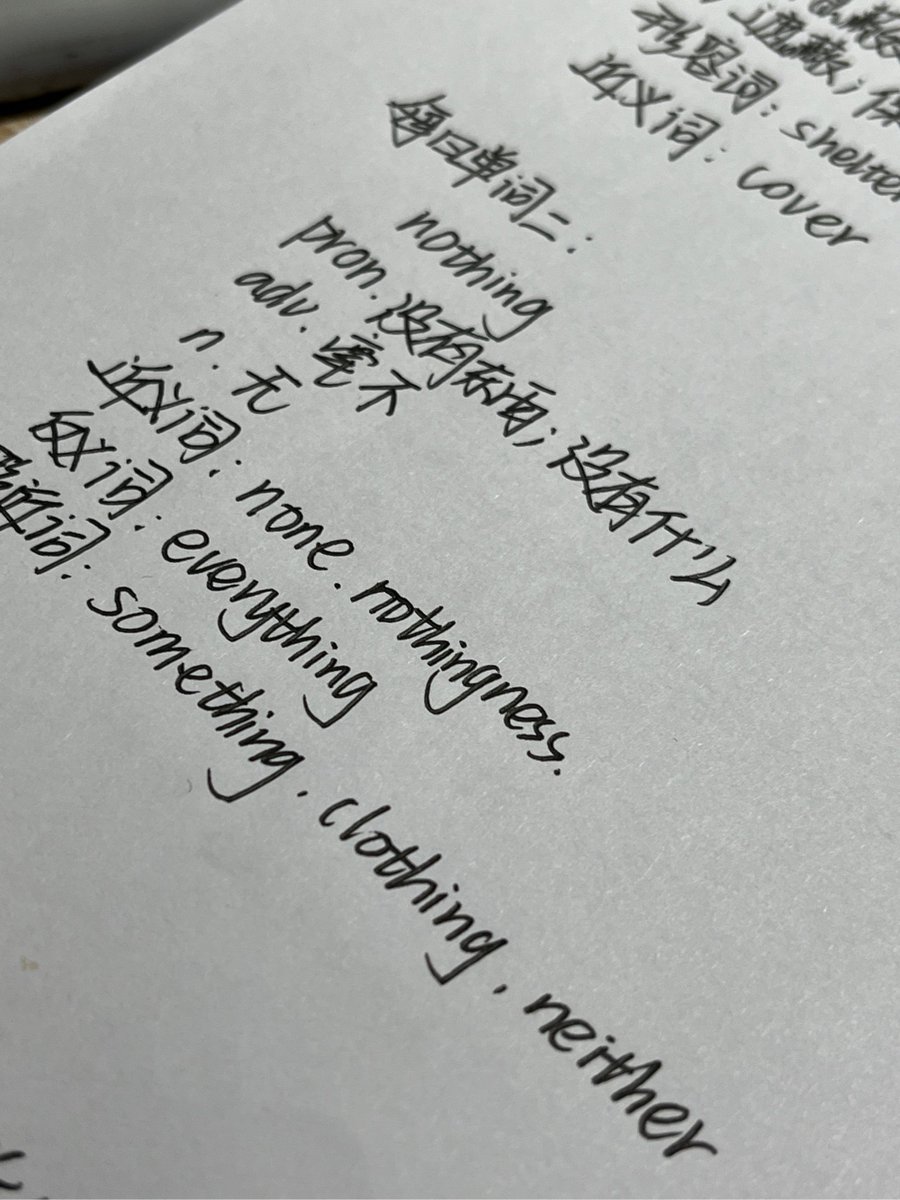 遮蔽；保
形容词：shelte
近义词：cover
每日单词二：
nothing
pron. 没有东西；没有什么
adv. 毫不
n. 无
近义词：none. nothingness.
反义词：everything
词：something. clothing. neither